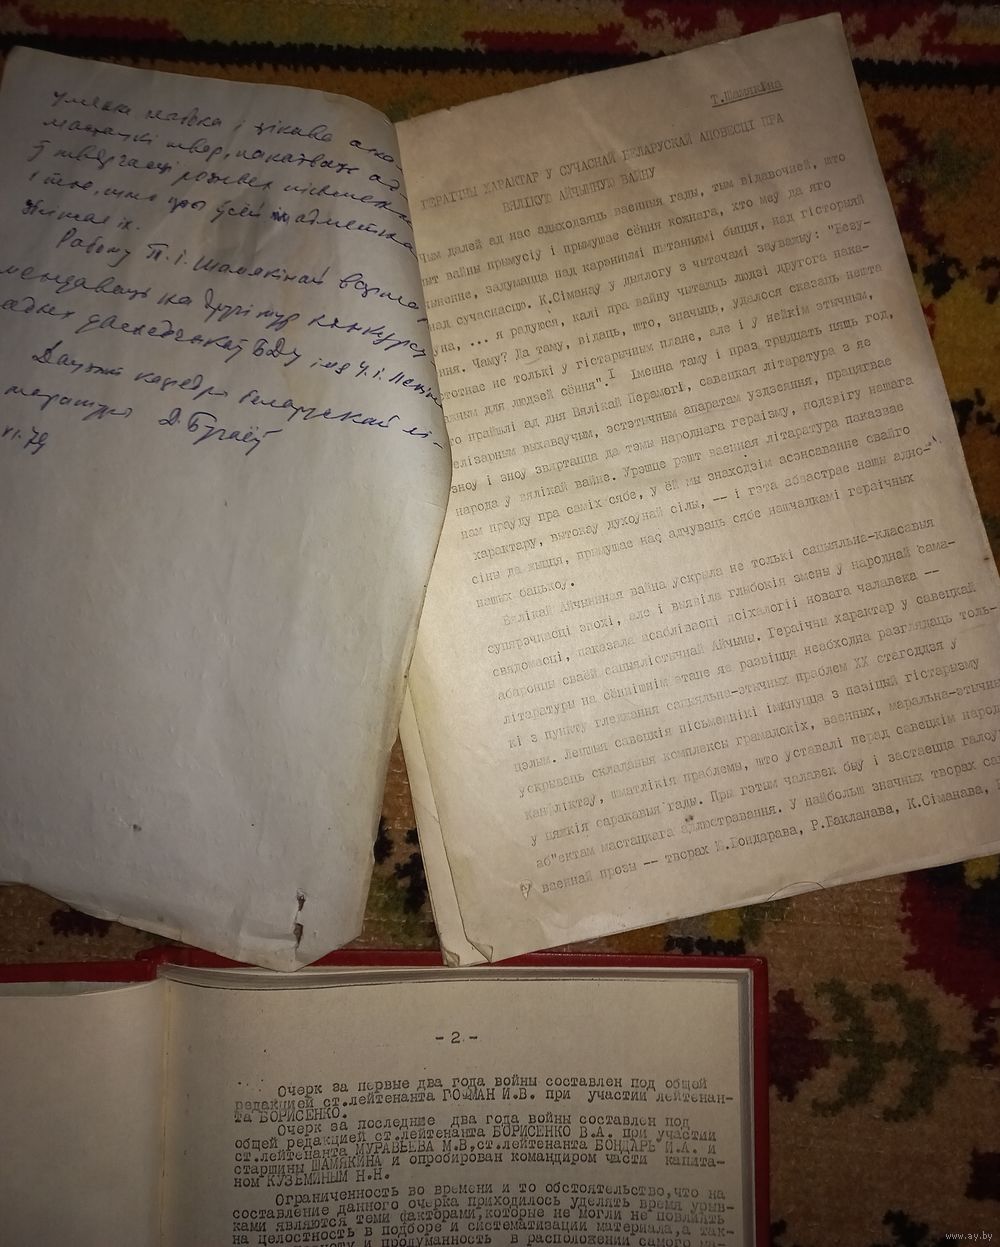 умела
і цікава
мастацкі твор, паказваць
ў творчасці
і тое, што
збліжае іх.
Работу Т.І. Шамякінай
на другі тур конкурсу
БДУ імя У.І. Леніна
Дацэнт кафедры беларускай лі-
таратуры Д. Бугаёў
Т.Шамякіна
ГЕРАІЧНЫ ХАРАКТАР У СУЧАСНАЙ БЕЛАРУСКАЙ АПОВЕСЦІ ПРА
ВЯЛІКУЮ АЙЧЫННУЮ ВАЙНУ
Чым далей ад нас адыходзяць ваенныя гады, тым відавочней, што
вайны прымусіў і прымушае сёння кожнага, хто меў да яго
задумацца над карэннымі пытаннямі быцця, над гісторыяй
над сучаснасцю. К.Сіманаў у дыялогу з чытачамі зауважыу: "Безу-
... я радуюся, калі пра вайну чытаюць людзі другога пака-
ння. Чаму? Да таму, відаць, што, значыць, удалося сказаць нешта
не толькі у гістарычным плане, але і ў нейкім этычным,
важным для людзей сёння".I Іменна таму і праз трыдцать пяць год,
прайшлі ад дня Вялікай Перамогі, савецкая літаратура з яе
выхаваучым, эстэтычным апаратам уздзеяння, працягвае
зноу і зноу звяртацца да тэмы народнага гераізму, подзвігу нашага
народа у вялікай вайне. Урэшце рэшт ваенная літаратура паказвае
нам прауду пра саміх сябе, у ёй мы знаходзім асэнсаванне свайго
характару, вытокау духоунай сілы, -- і гэта абвастрае нашы адно-
сіны да жыцця, прымушае нас адчуваць сябе нашчадкамі гераічных
нашых бацькоу.
Вялікай Айчынная вайна ускрыла не толькі сацыяльна-класавыя
супярэчнасці эпохі, але і выявіла глыбокія змены ў народнай сама-
свядомасці, паказала асаблівасці псіхалогіі новага чалавека --
абаронцы сваёй сацыялістычнай Айчыны. Гераічны характар у савецкай
літаратуры на сённішнім этапе яе развіцця неабходна разглядаць толь-
кі з пункту гледжання сацыяльна-этычных праблем XX стагоддзя у
цэлым. Лепшыя савецкія пісьменнікі імкнуцца з пазіцый гістарызму
ускрываць складаныя комплексы грамадскіх, ваенных, маральна-этычных
канфліктау, шматлікія праблемы, што уставалі перад савецкім народ
у цяжкія саракавыя гады. Пры гэтым чалавек быу і застаецца галоу
аб"ектам мастацкага адлюстравання. У найбольш значных творах са
ваеннай прозы -- творах Ю.Бондарава, Р.Бакланава, К.Сіманава,
- 2 -
Очерк за первые два года войны составлен под общей
редакцией ст.лейтенанта ГОФМАН И.В. при участии лейтенан-
та БОРИСЕНКО.
Очерк за последние два года войны составлен под
общей редакцией ст.лейтенанта БОРИСЕНКО В.А. при участии
ст.лейтенанта МУРАВЬЕВА М.В,ст.лейтенанта БОНДАРЬ И.А. и
старшины ШАМЯКИНА и опробирован командиром части капита-
ном КУЗЬМИНЫМ Н.Н.
Ограниченность во времени и то обстоятельство,что на
составление данного очерка приходилось уделять время урыв-
ками являются теми факторами,которые не могли не повлиять
на целостность в подборе и систематизации материала,а так-
и продуманность в расположении самого ма-
www.ay.by